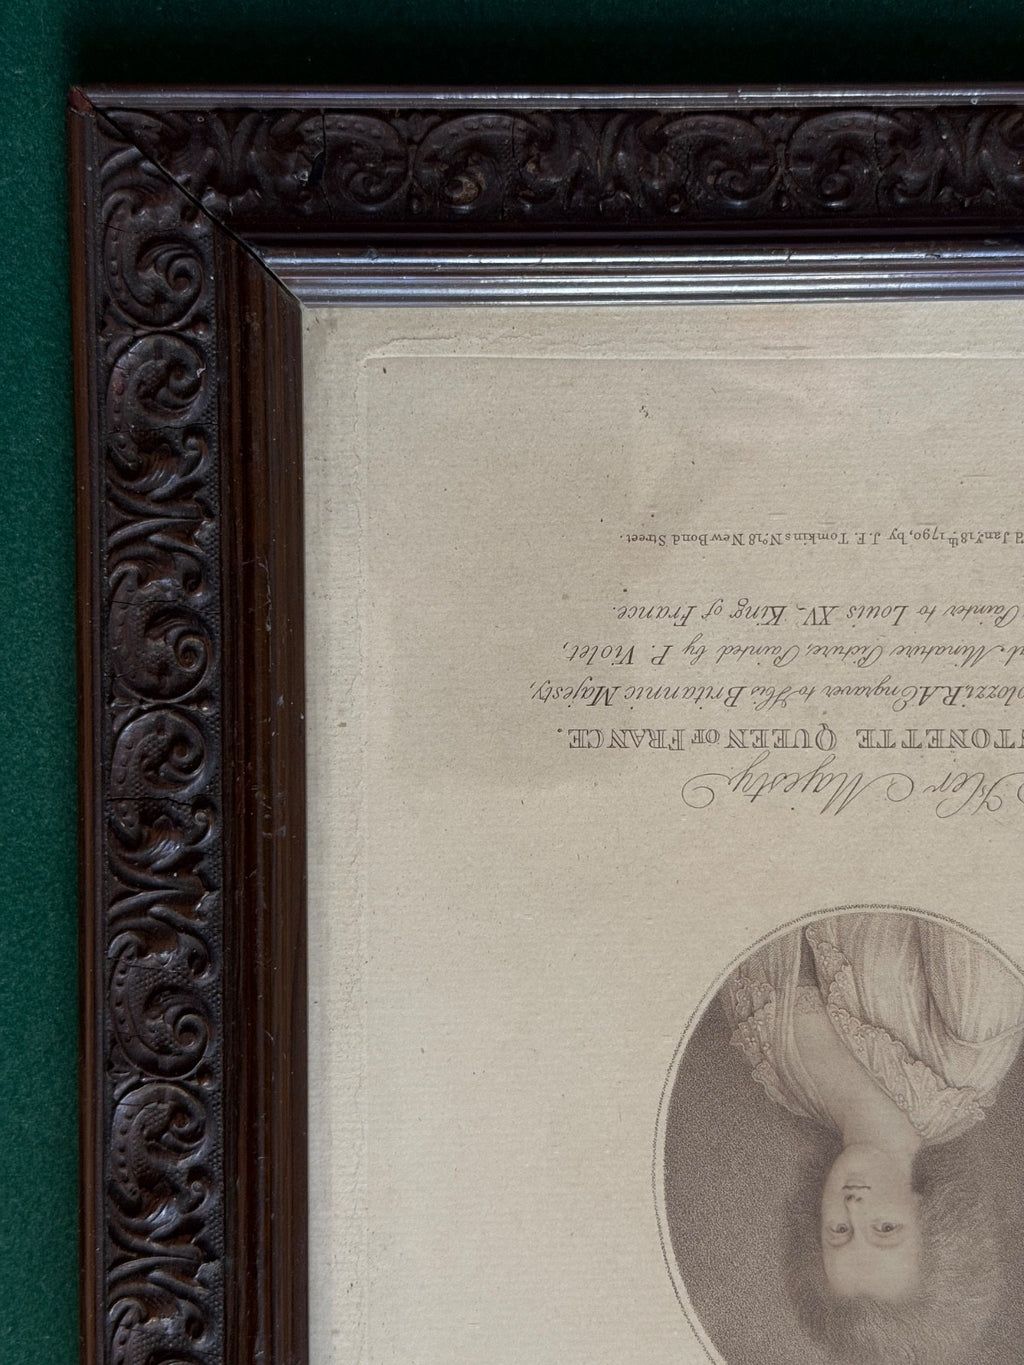 Her Majesty
TONETTE QUEEN OF FRANCE.
olozzi, R.A. Engraver to His Britannic Majesty,
Minature Picture, Painted by P. Violet,
Painter to LOUIS XV. King of France.
Jany. 18th. 1790, by J. F. Tomkins No. 18 New Bond Street.